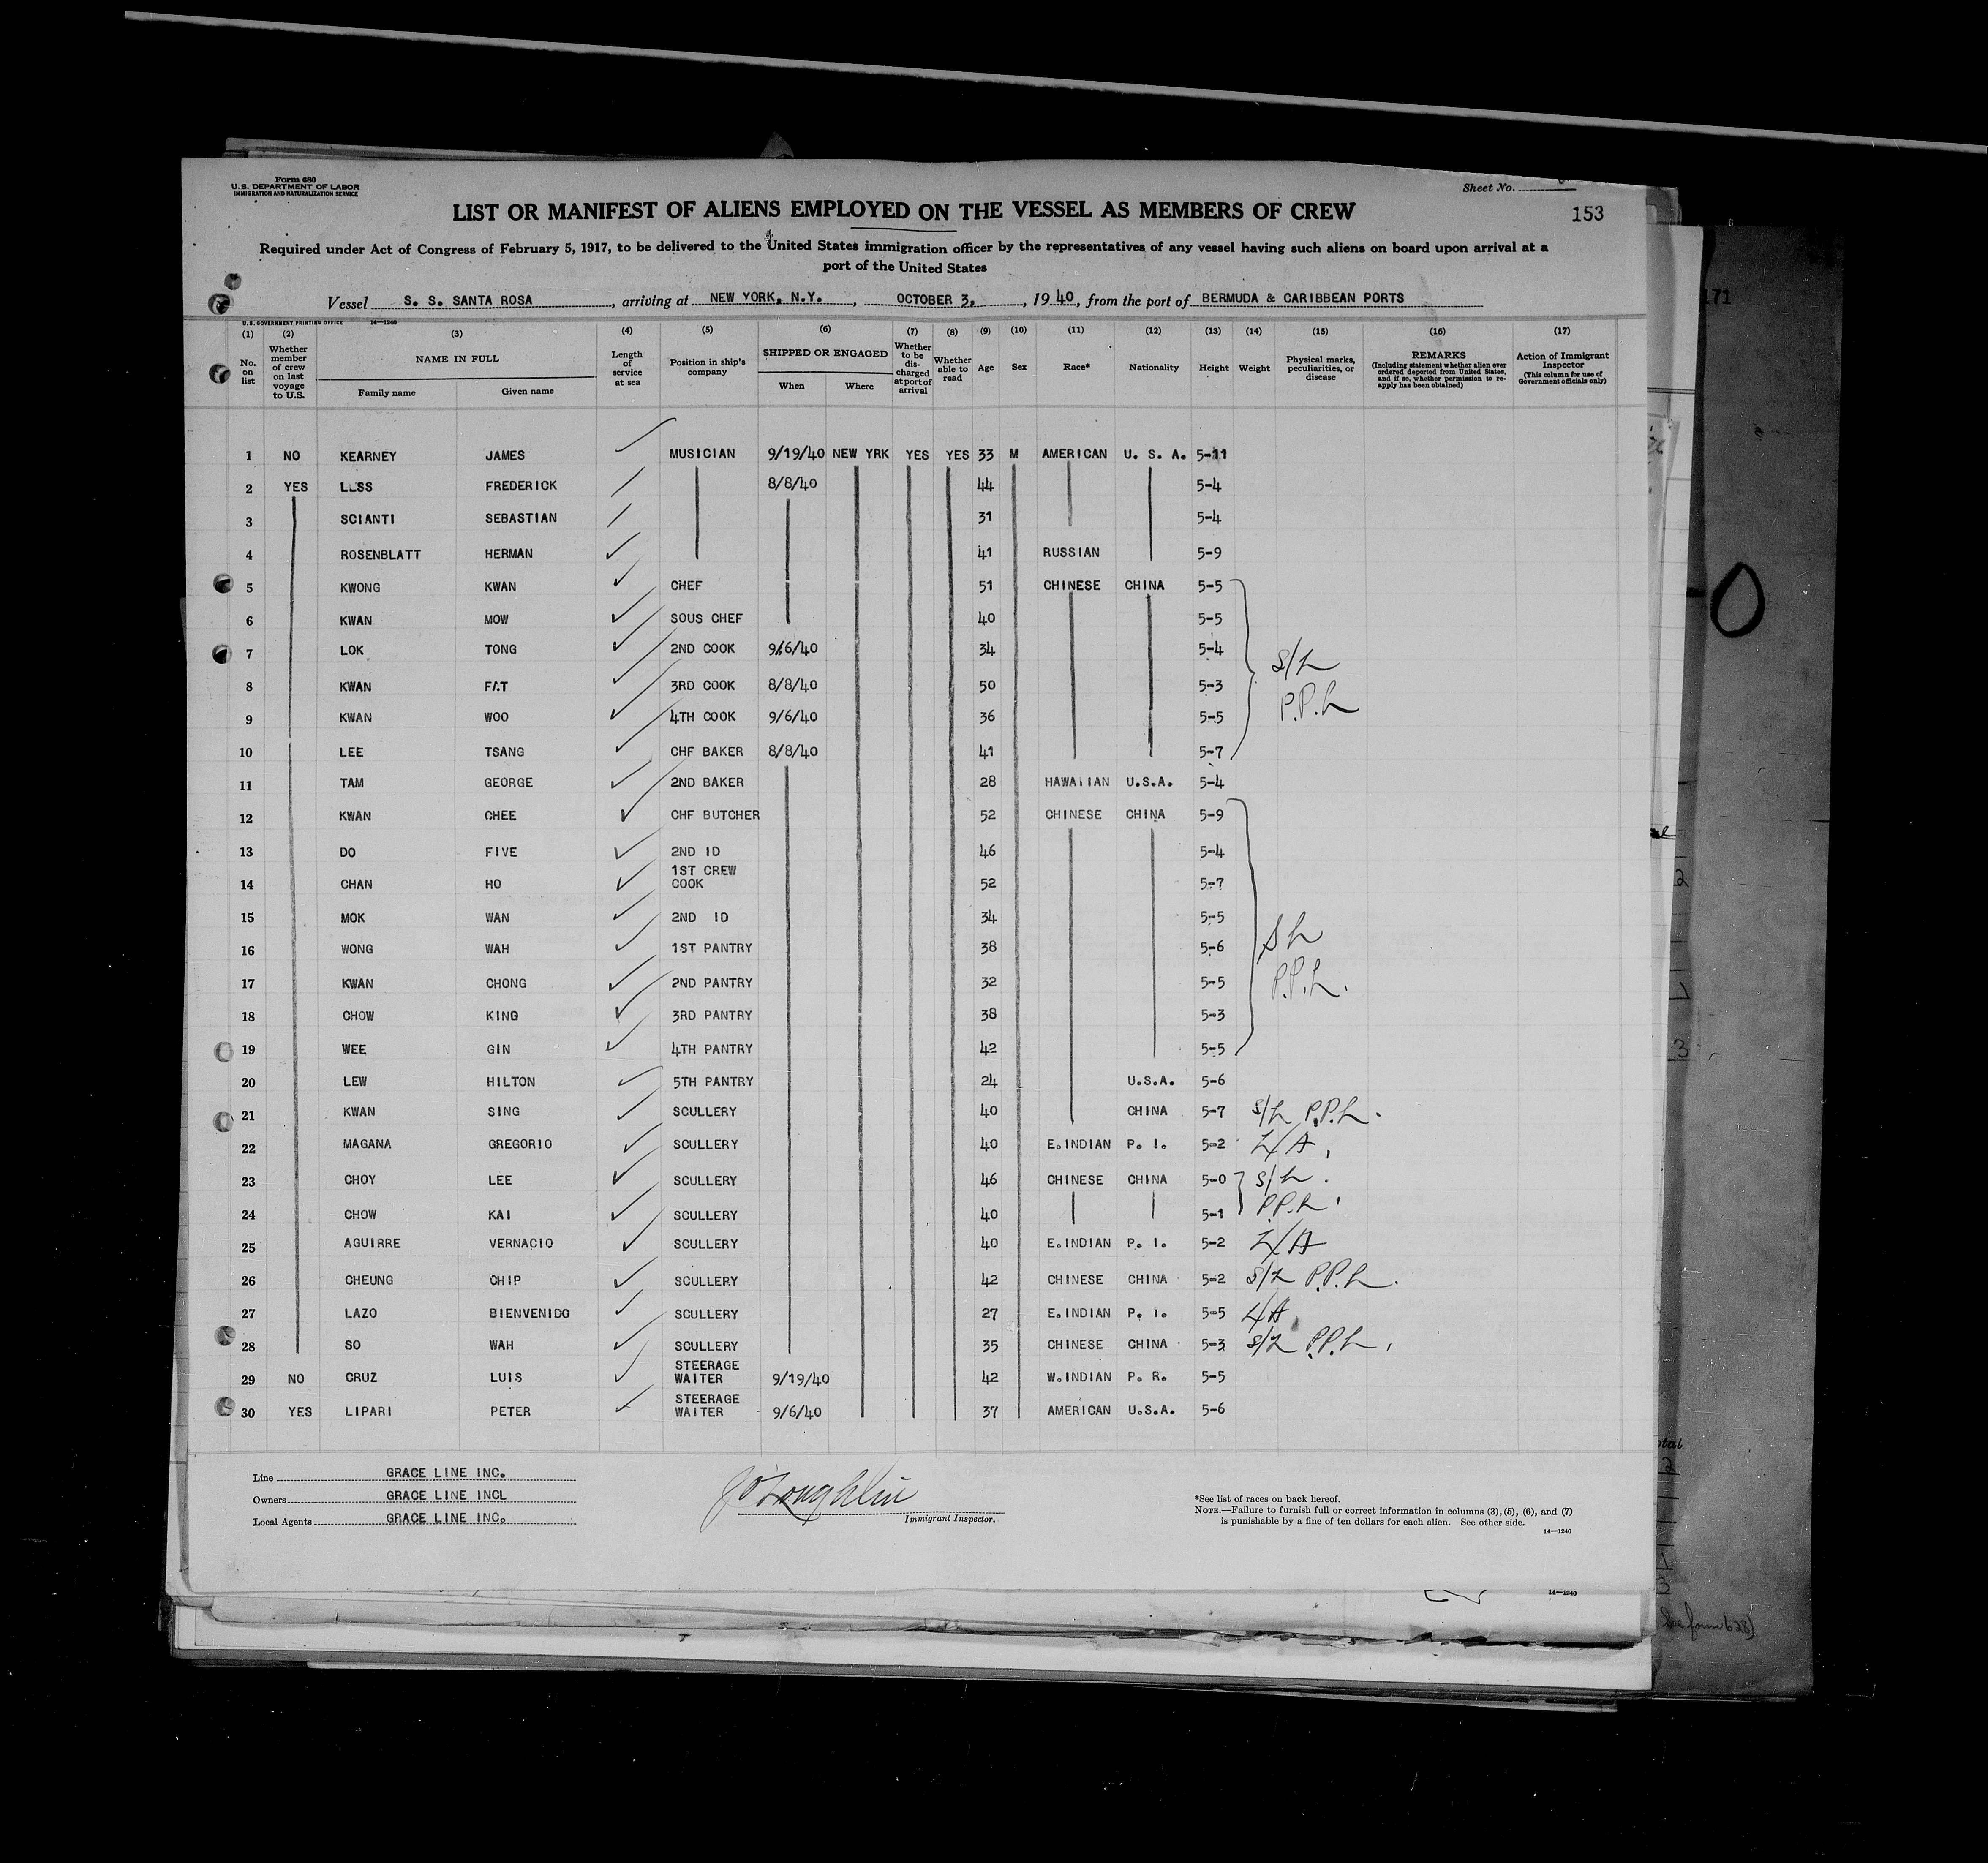 Form 680
U.S. DEPARTMENT OF LABOR
IMMIGRATION AND NATURALIZATION SERVICE
Sheet No.
LIST OR MANIFEST OF ALIENS EMPLOYED ON THE VESSEL AS MEMBERS OF CREW
153
Required under Act of Congress of February 5, 1917, to be delivered to the United States immigration officer by the representatives of any vessel having such aliens on board upon arrival at a
port of the United States
Vessel S. S. SANTA ROSA, arriving at NEW YORK, N.Y., OCTOBER 3, 1940, from the port of BERMUDA & CARIBBEAN PORTS
171
U.S. GOVERNMENT PRINTING OFFICE 14—1240
(1) (2) (3) (4) (5) (6) (7) (8) (9) (10) (11) (12) (13) (14) (15) (16) (17)
No. on list
Whether member of crew on last voyage to U.S.
NAME IN FULL
Family name
Given name
Length of service at sea
Position in ship's company
SHIPPED OR ENGAGED
When
Where
Whether to be discharged at port of arrival
Whether able to read
Age
Sex
Race*
Nationality
Height
Weight
Physical marks, peculiarities, or disease
REMARKS
(Including statement whether alien ever ordered deported from United States, and if so, whether permission to reapply has been obtained)
Action of Immigrant Inspector
(This column for use of Government officials only)
1 NO KEARNEY JAMES MUSICIAN 9/19/40 NEW YRK YES YES 33 M AMERICAN U. S. A. 5-11
2 YES FREDERICK 8/8/40 44 5-4
3 SCIANTI SEBASTIAN 31 5-4
4 ROSENBLATT HERMAN 41 RUSSIAN 5-9
5 KWONG KWAN CHEF 51 CHINESE CHINA 5-5
6 KWAN MOW SOUS CHEF 40 5-5
7 LOK TONG 2ND COOK 9/6/40 34 5-4 S/L
8 KWAN FAT 3RD COOK 8/8/40 50 5-3 P.P.L
9 KWAN WOO 4TH COOK 9/6/40 36 5-5
10 LEE TSANG CHF BAKER 8/8/40 41 5-7
11 TAM GEORGE 2ND BAKER 28 HAWAIIAN U.S.A. 5-4
12 KWAN CHEE CHF BUTCHER 52 CHINESE CHINA 5-9
13 DO FIVE 2ND ID 46 5-4
14 CHAN HO 1ST CREW COOK 52 5-7
15 MOK WAN 2ND ID 34 5-5
16 WONG WAH 1ST PANTRY 38 5-6 S L
17 KWAN CHONG 2ND PANTRY 32 5-5 P.P.L.
18 CHOW KING 3RD PANTRY 38 5-3
19 WEE GIN 4TH PANTRY 42 5-5
20 LEW HILTON 5TH PANTRY 24 U.S.A. 5-6
21 KWAN SING SCULLERY 40 CHINA 5-7 S/L P.P.L.
22 MAGANA GREGORIO SCULLERY 40 E.INDIAN P. I. 5-2 L/A
23 CHOY LEE SCULLERY 46 CHINESE CHINA 5-0 S/L.
24 CHOW KAI SCULLERY 40 5-1 P.P.L.
25 AGUIRRE VERNACIO SCULLERY 40 E.INDIAN P. I. 5-2 L/A
26 CHEUNG CHIP SCULLERY 42 CHINESE CHINA 5-2 S/L P.P.L.
27 LAZO BIENVENIDO SCULLERY 27 E.INDIAN P. I. 5-5 L/A
28 SO WAH SCULLERY 35 CHINESE CHINA 5-3 S/L P.P.L.
29 NO CRUZ LUIS STEERAGE WAITER 9/19/40 42 W.INDIAN P. R. 5-5
30 YES LIPARI PETER STEERAGE WAITER 9/6/40 37 AMERICAN U.S.A. 5-6
Line GRACE LINE INC.
Owners GRACE LINE INCL
Local Agents GRACE LINE INC.
J O'Loughlin
Immigrant Inspector.
*See list of races on back hereof.
NOTE.—Failure to furnish full or correct information in columns (3), (5), (6), and (7)
is punishable by a fine of ten dollars for each alien. See other side.
14—1240
14—1240